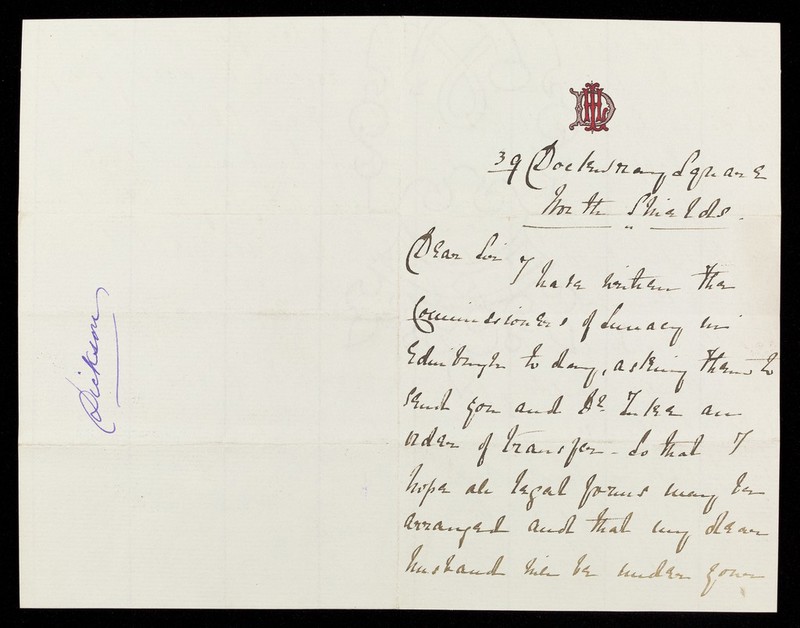 39 Dockwray Square
North Shields.
Dear Sir I have written the
Commissioners of Lunacy in
Edinburgh to day, asking them to
send you and Dr. Tuke an
order of transfer - so that I
hope all legal forms may be
arranged and that my dear
husband will be under your
Dickson